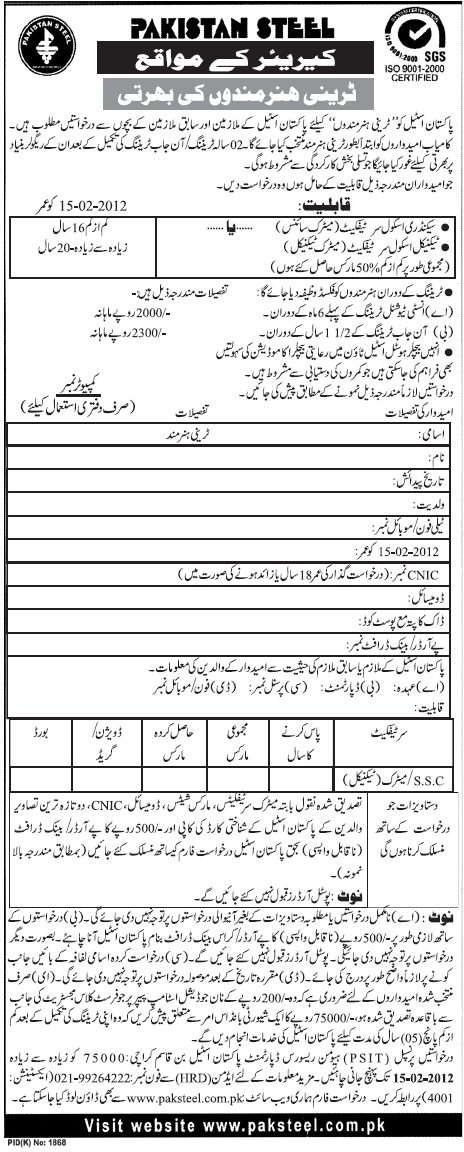 PAKISTAN STEEL
PAKISTAN STEEL
کیریئر کے مواقع
SGS
ISO 9001:2000
ISO 9001-2000
CERTIFIED
ٹرینی ہنرمندوں کی بھرتی
پاکستان اسٹیل کو ”ٹرینی ہنرمندوں“ کیلئے پاکستان اسٹیل کے ملازمین اور سابق ملازمین کے بچوں سے درخواستیں مطلوب ہیں۔
کامیاب امیدواروں کو ابتداً بطور ٹرینی ہنرمند منتخب کیا جائے گا۔ 02 سالہ ٹریننگ/آن جاب ٹریننگ کی تکمیل کے بعد ان کے ریگولر بنیاد
پر بھرتی کیلئے غور کیا جائے گا جو تسلی بخش کارکردگی سے مشروط ہوگی۔
جو امیدواران مندرجہ ذیل قابلیت کے حامل ہوں وہ درخواست دیں۔
قابلیت: 15-02-2012 کو عمر
● سیکنڈری اسکول سرٹیفکیٹ (میٹرک سائنس) ----یا---- کم از کم 16 سال
● ٹیکنیکل اسکول سرٹیفکیٹ (میٹرک ٹیکنیکل) زیادہ سے زیادہ-20 سال
(مجموعی طور پر کم از کم %50 مارکس حاصل کئے ہوں)
● ٹریننگ کے دوران ہنرمندوں کو فکسڈ وظیفہ دیا جائے گا: تفصیلات مندرجہ ذیل ہیں:-
(اے) انسٹی ٹیوشنل ٹریننگ کے پہلے 6 ماہ کے دوران۔ -/2000 روپے ماہانہ
(بی) آن جاب ٹریننگ کے 1 1/2 سال کے دوران۔ -/2300 روپے ماہانہ
● انہیں بیچلر ہوسٹل اسٹیل ٹاؤن میں رعایتی بیچلر اکاموڈیشن کی سہولتیں
بھی فراہم کی جاسکتی ہیں جو کمروں کی دستیابی سے مشروط ہیں۔
درخواستیں لازماً مندرجہ ذیل نمونے کے مطابق پیش کی جائیں۔
کمپیوٹر نمبر
(صرف دفتری استعمال کیلئے)
امیدوار کی تفصیلات تفصیلات
اسامی: ٹرینی ہنرمند
نام:
تاریخ پیدائش:
ولدیت:
ٹیلی فون/موبائل نمبر:
15-02-2012 کو عمر:
CNIC نمبر: (درخواست گذار کی عمر 18 سال یا زائد ہونے کی صورت میں)
ڈومیسائل:
ڈاک کا پتہ مع پوسٹ کوڈ:
پے آرڈر/بینک ڈرافٹ نمبر:
پاکستان اسٹیل کے ملازم یا سابق ملازم کی حیثیت سے امیدوار کے والدین کی معلومات۔
(اے) عہدہ: (بی) ڈپارٹمنٹ: (سی) پرسنل نمبر: (ڈی) فون/موبائل نمبر
قابلیت:
سرٹیفکیٹ پاس کرنے کا سال مجموعی مارکس حاصل کردہ مارکس ڈویژن/گریڈ بورڈ
S.S.C/میٹرک (ٹیکنیکل)
دستاویزات جو درخواست کے ساتھ منسلک کرنا ہوں گی
تصدیق شدہ نقول بابتہ میٹرک سرٹیفکیٹس، مارکس شیٹس، ڈومیسائل، CNIC، دو تازہ ترین تصاویر
والدین کے پاکستان اسٹیل کے شناختی کارڈ کی کاپی اور -/500 روپے کا پے آرڈر/بینک ڈرافٹ
(ناقابل واپسی) بحق پاکستان اسٹیل درخواست فارم کیساتھ منسلک کئے جائیں (بمطابق مندرجہ بالا
نمونہ)۔
نوٹ: پوسٹل آرڈرز قبول نہیں کئے جائیں گے۔
نوٹ: (اے) نامکمل درخواستیں یا مطلوبہ دستاویزات کے بغیر آنیوالی درخواستوں پر توجہ نہیں دی جائے گی۔ (بی) درخواستوں کے
ساتھ لازمی طور پر -/500 روپے (ناقابل واپسی) کا پے آرڈر/کراس بینک ڈرافٹ بنام پاکستان اسٹیل آنا چاہئے۔ بصورت دیگر
درخواستوں پر توجہ نہیں دی جائیگی۔ پوسٹل آرڈرز قبول نہیں کئے جائیں گے۔ (سی) درخواست کردہ اسامی لفافہ کے بائیں جانب
کونے پر لازماً واضح طور پر درج کی جائے۔ (ڈی) مقررہ تاریخ کے بعد موصولہ درخواستوں پر توجہ نہیں دی جائے گی۔ (ای) صرف
منتخب شدہ امیدواروں کے لئے ضروری ہے کہ وہ -/200 روپے کے نان جوڈیشل اسٹامپ پیپر پر جو فرسٹ کلاس مجسٹریٹ کی جانب
سے باقاعدہ تصدیق شدہ ہو، -/75000 روپے کا ایک شیورٹی بانڈ اس امر سے متعلق پیش کریں کہ وہ اپنی ٹریننگ کی تکمیل کے بعد کم
از کم پانچ (05) سال کی مدت کیلئے پاکستان اسٹیل کی خدمات انجام دیں گے۔
درخواستیں پرنسپل (PSIT) ہیومن ریسورس ڈپارٹمنٹ پاکستان اسٹیل بن قاسم کراچی: 75000 کو زیادہ سے زیادہ
15-02-2012 تک پہنچ جانی چاہئیں۔ مزید معلومات کے لئے ایڈمن (HRD) سے فون نمبر: 021-99264222 (ایکسٹینشن:
4001) پر رابطہ کریں۔ درخواست فارم ہماری ویب سائٹ: www.paksteel.com.pk سے بھی ڈاؤن لوڈ کیا جاسکتا ہے۔
Visit website www.paksteel.com.pk
PID(K) No: 1868